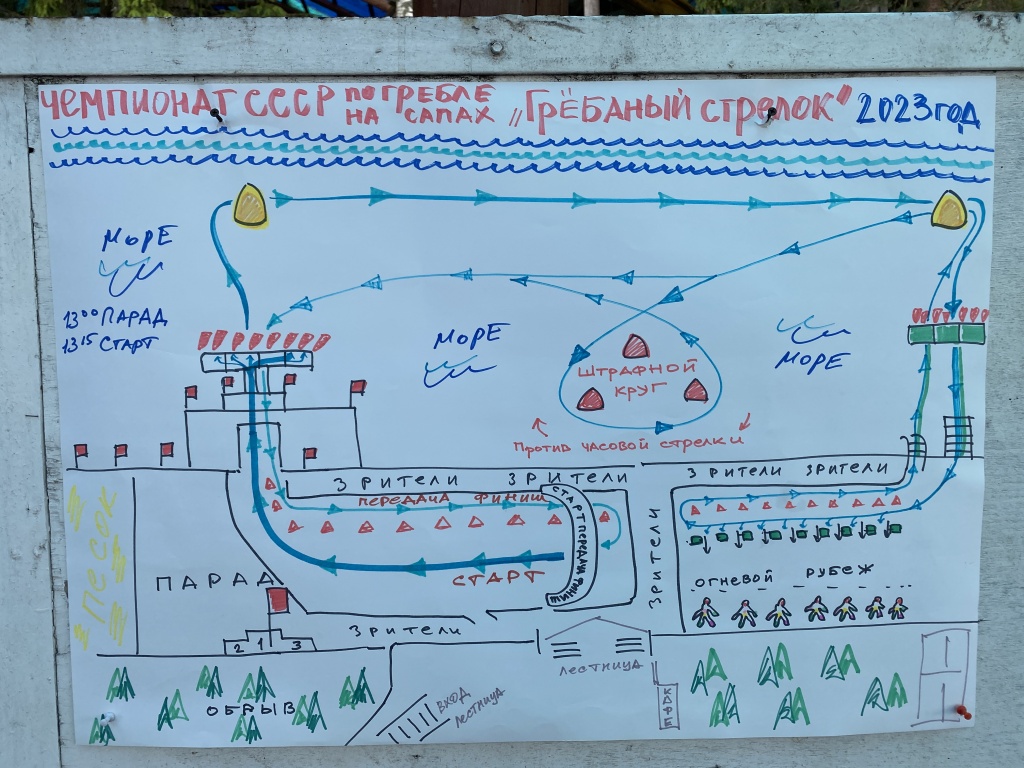 ЧЕМПИОНАТ СССР ПО ГРЕБЛЕ НА САПАХ „ГРЁБАНЫЙ СТРЕЛОК" 2023 ГОД
МОРЕ
13⁰⁰ ПАРАД
13¹⁵ СТАРТ
МОРЕ
МОРЕ
ШТРАФНОЙ
КРУГ
ПРОТИВ ЧАСОВОЙ СТРЕЛКИ
ЗРИТЕЛИ ЗРИТЕЛИ
ЗРИТЕЛИ ЗРИТЕЛИ
ПЕРЕДАЧА ФИНИШ
СТАРТ ПЕРЕДАЧИ ФИНИШ
СТАРТ
ЗРИТЕЛИ
ПЕСОК
ПАРАД
ОГНЕВОЙ РУБЕЖ
2 1 3
ЗРИТЕЛИ
ЛЕСТНИЦА
ОБРЫВ
ВХОД
ЛЕСТНИЦА
КАФЕ